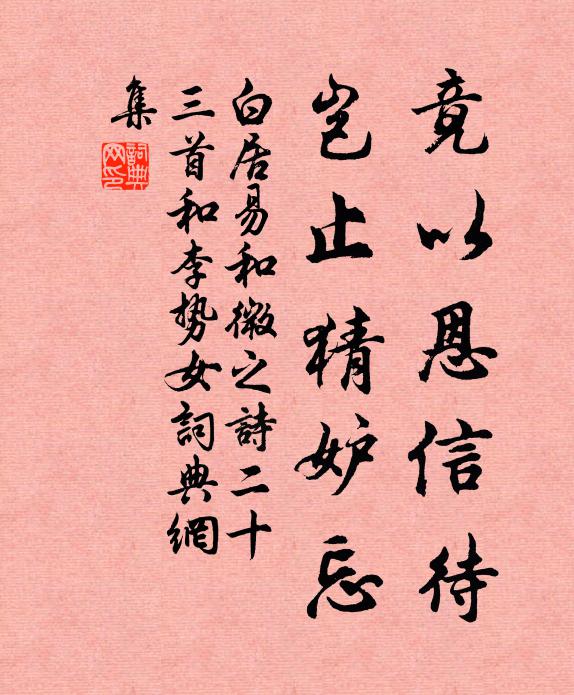 竟以恩信待
岂止猜妒忘
白居易和微之詩二十
三首和李势女詞典網
集
詞典
网印